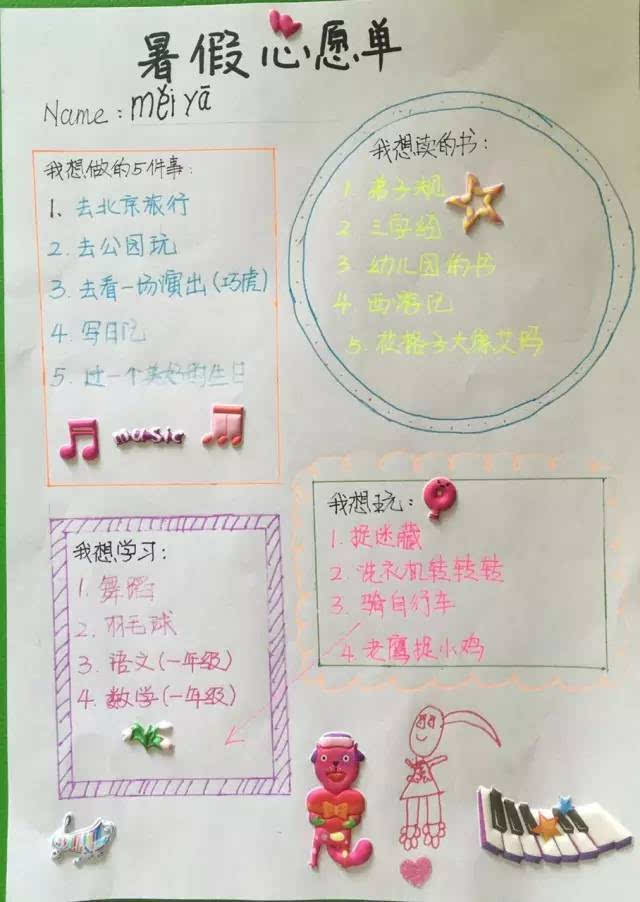 暑假心愿单
Name: měi yā
我想做的5件事:
1、去北京旅行
2.去公园玩
3.去看一场演出(巧虎)
4.写日记
5.过一个美好的生日
music
我想读的书:
1.弟子规
2.三字经
3.幼儿园的书
4.西游记
5.花格子大象艾玛
我想学习:
1.舞蹈
2.羽毛球
3.语文(一年级)
4.数学(一年级)
我想玩:
1.捉迷藏
2.洗衣机转转转
3.骑自行车
4.老鹰捉小鸡